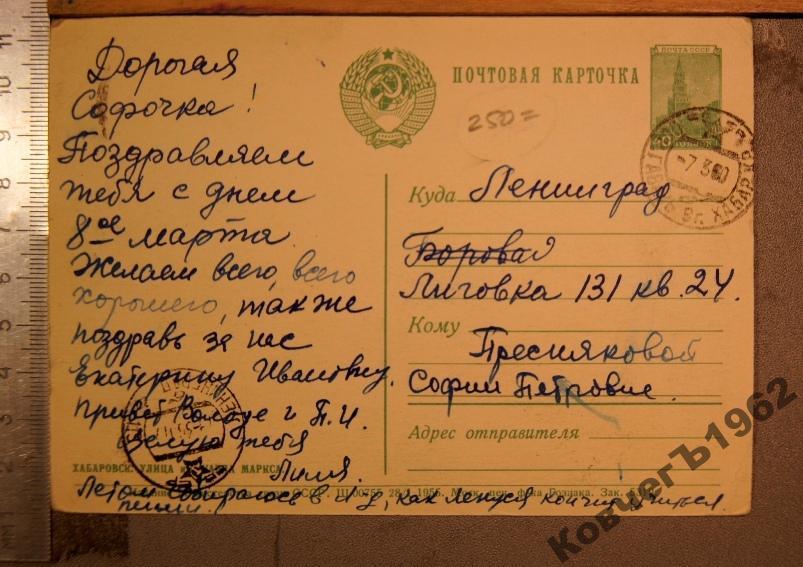 Дорогая
Софочка!
Поздравляем
тебя с днем
8ое марта
Желаем всего, всего
хорошего, также
поздравь за нас
Екатерину Ивановну.
Привет Володе и П.И.
Целую тебя
Лиля.
Летом собираюсь в
как Ленуся кончит учиться.
пиши.
ПОЧТОВАЯ КАРТОЧКА
250=
ПОЧТА СССР
40 КОПЕЕК
-7 3 60
Куда Ленинград
Боровая
Лиговка 131 кв. 24.
Кому
Пресняковой
Софии Петровне.
Адрес отправителя
ХАБАРОВСК. УЛИЦА КАРЛА МАРКСА
СССР. Ш00755 28/I 1956. Гознака. Зак.
КовчегЪ1962